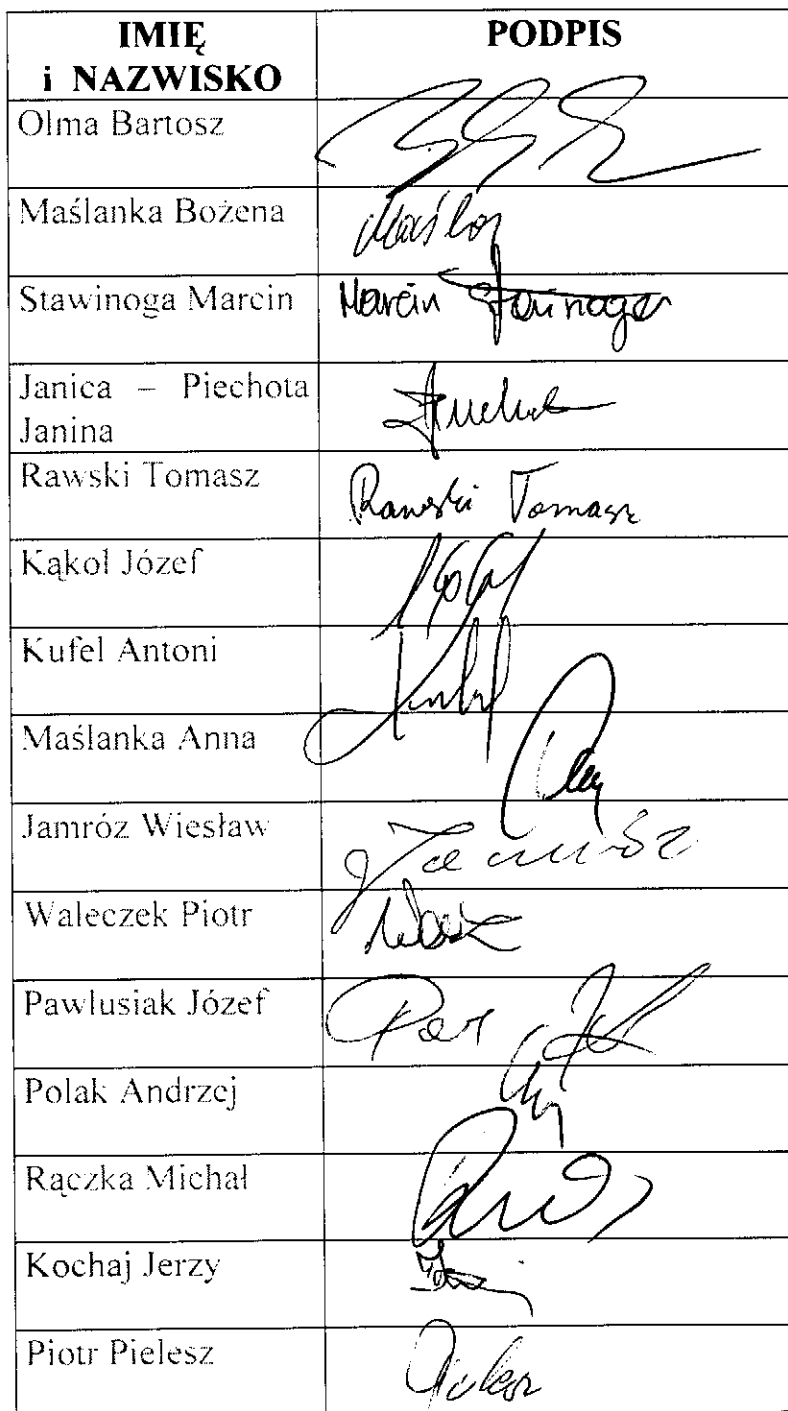 IMIĘ PODPIS
i NAZWISKO
Olma Bartosz
Maślanka Bożena
Stawinoga Marcin Marcin Stawinoga
Janica – Piechota
Janina
Rawski Tomasz Rawski Tomasz
Kąkol Józef
Kufel Antoni
Maślanka Anna
Jamróz Wiesław Jamróz
Waleczek Piotr
Pawlusiak Józef
Polak Andrzej
Rączka Michał
Kochaj Jerzy
Piotr Pielesz